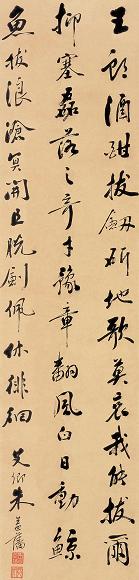 王郎酒酣拔劍斫地歌莫哀我能拔爾
抑塞磊落之奇才豫章翻風白日動鯨
魚拔浪滄冥開且脫劍佩休徘徊 艾卿朱益藩